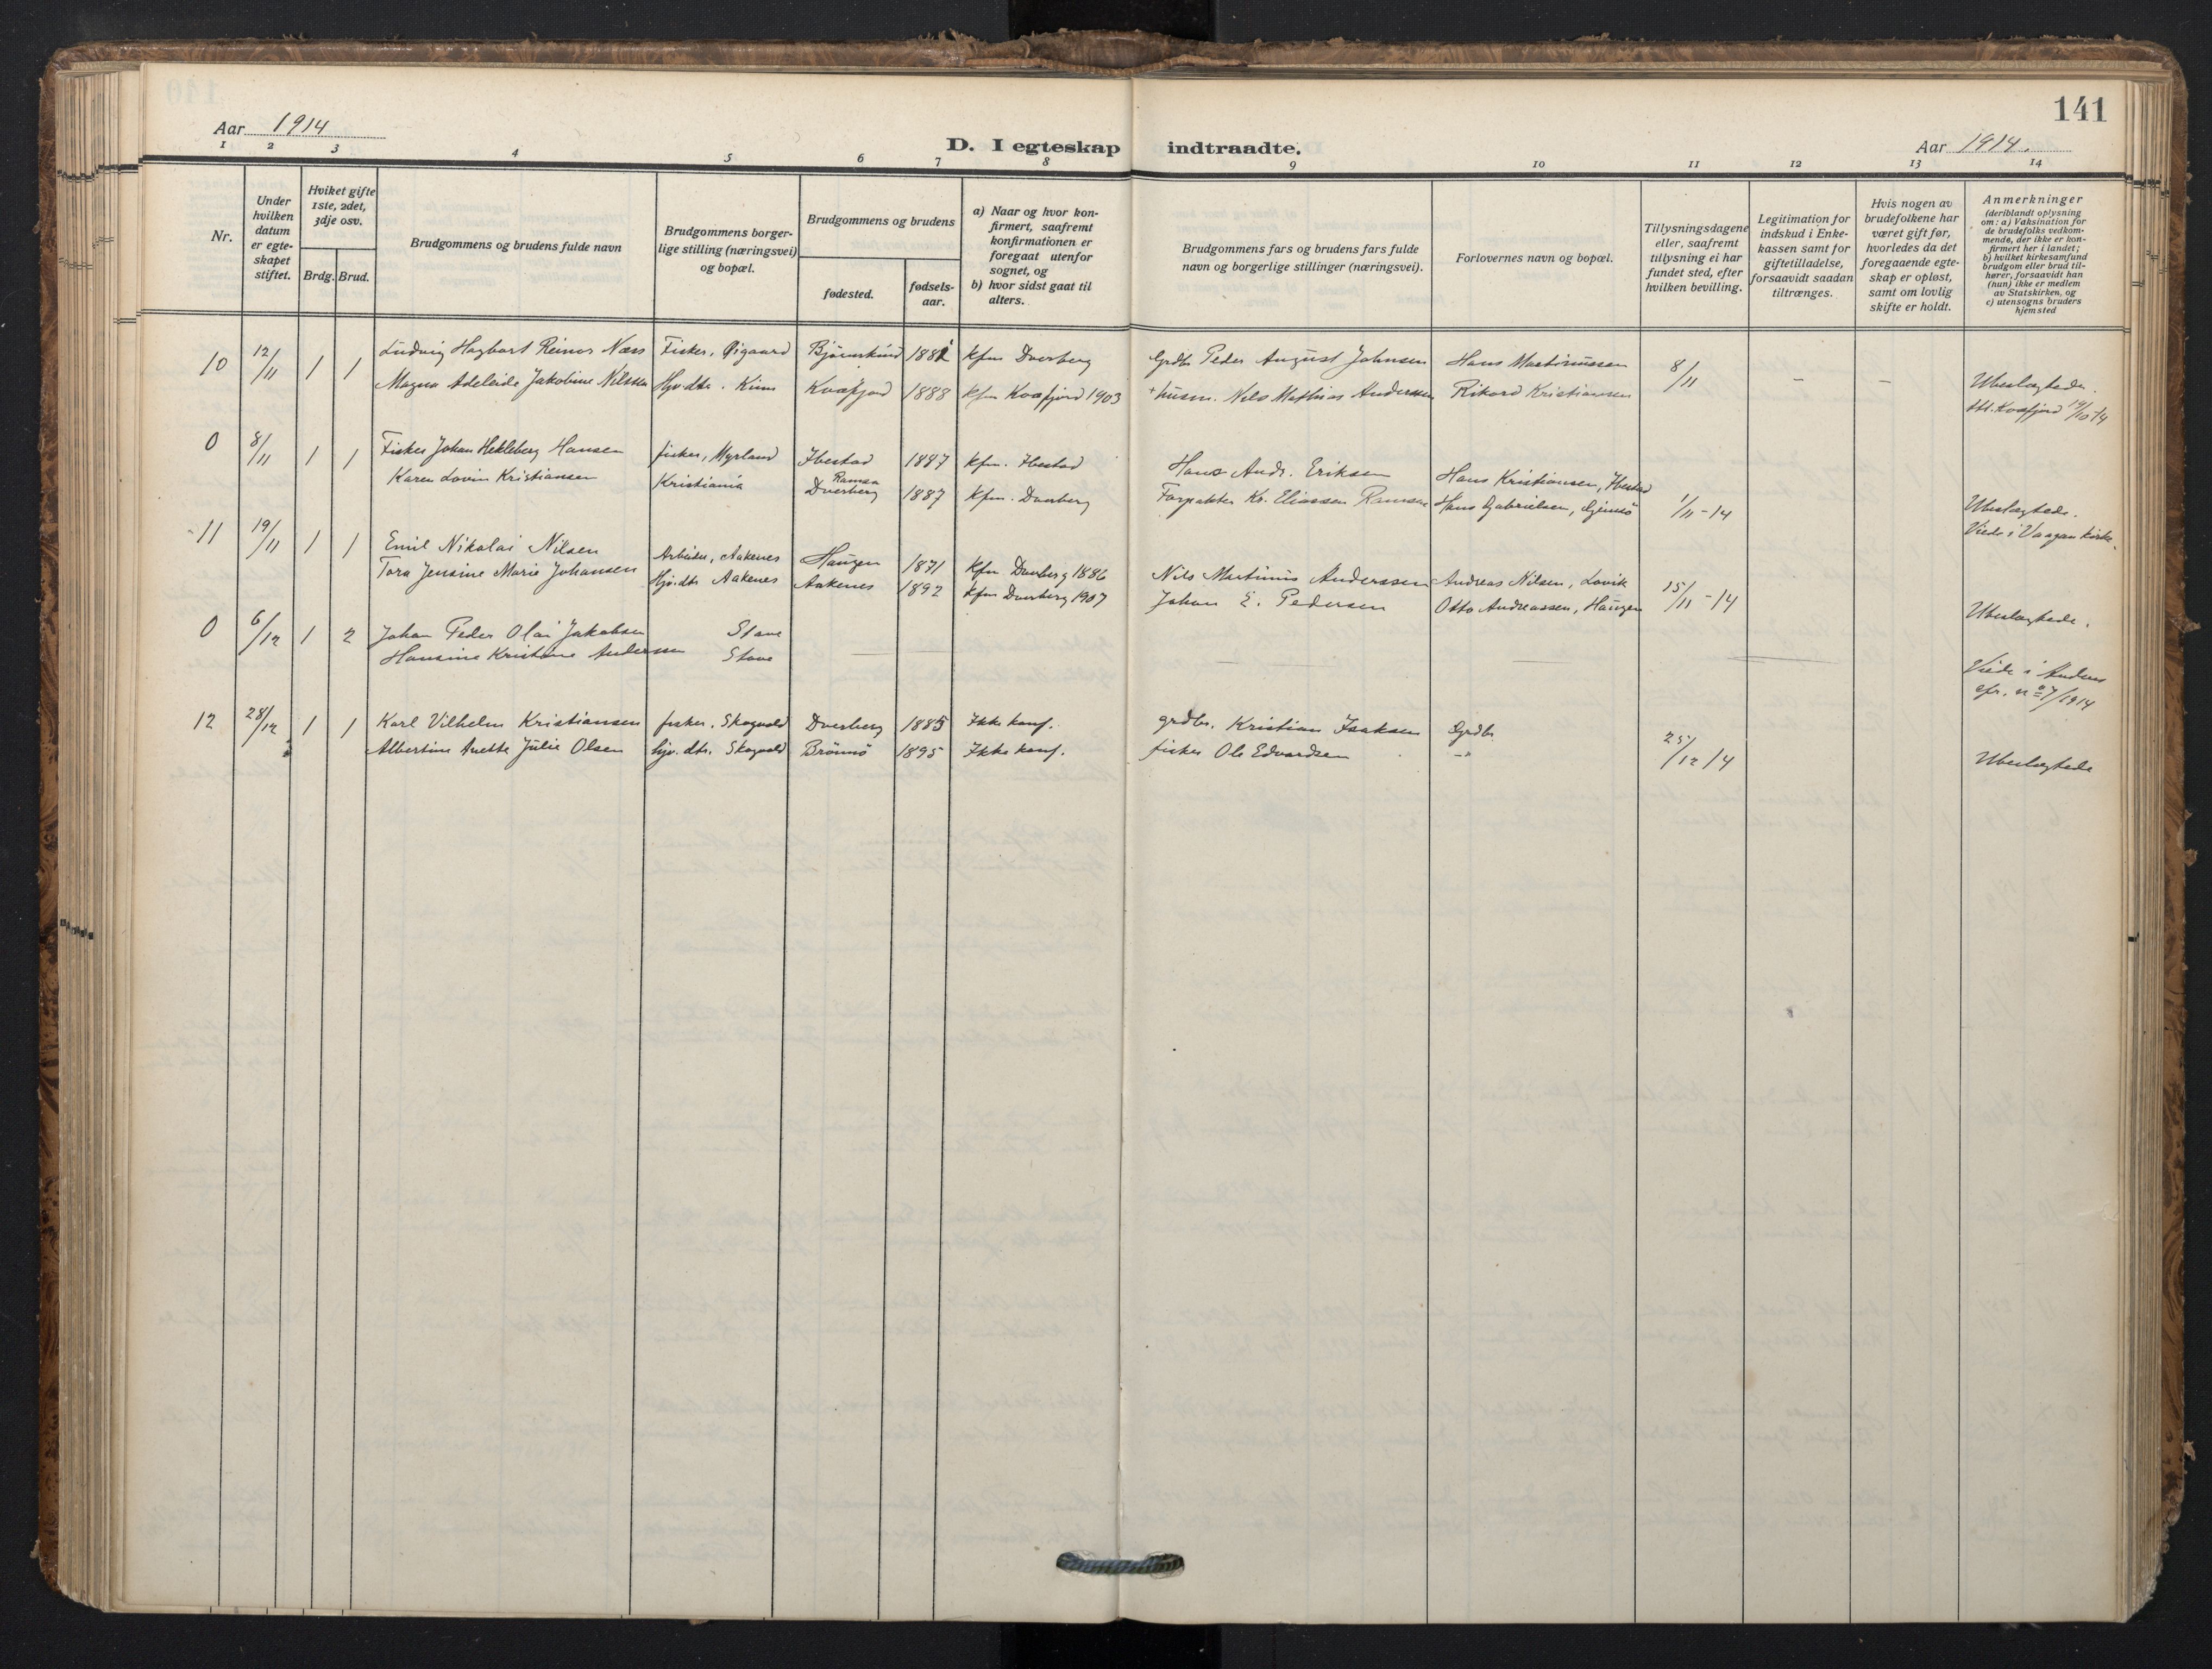 141
Aar 1914
D. I egteskap indtraadte.
Aar 1914.
1 2 3 4 5 6 7 8 9 10 11 12 13 14
Nr.
Under hvilken datum er egteskapet stiftet.
Hviket gifte 1ste, 2det, 3dje osv.
Brdg. Brud.
Brudgommens og brudens fulde navn
Brudgommens borgerlige stilling (næringsvei) og bopæl.
Brudgommens og brudens
fødested.
fødselsaar.
a) Naar og hvor konfirmert, saafremt konfirmationen er foregaat utenfor sognet, og
b) hvor sidst gaat til alters.
Brudgommens fars og brudens fars fulde navn og borgerlige stillinger (næringsvei).
Forlovernes navn og bopæl.
Tillysningsdagene eller, saafremt tillysning ei har fundet sted, efter hvilken bevilling.
Legitimation for indskud i Enkekassen samt for giftetilladelse, forsaavidt saadan tiltrænges.
Hvis nogen av brudefolkene har været gift før, hvorledes da det foregaaende egteskap er opløst, samt om lovlig skifte er holdt.
Anmerkninger
(deriblandt oplysning om: a) Vaksination for de brudefolks vedkommende, der ikke er konfirmert her i landet; b) hvilket kirkesamfund brudgom eller brud tilhører, forsaavidt han (hun) ikke er medlem av Statskirken, og c) utensogns bruders hjemsted
10 12/11 1 1 Ludvig Hagbart Reinor Næss Fisker, Øigaard 1881 kfm Dverberg Grdbr Peder August Johnsen Hans Martinussen 8/11 - - Ubeslægtede.
Magna Adeleide Jakobine Nilssen Hjv.dtr. Kvæfjord 1888 kfm Kvæfjord 1903 + husm. Nils Mathias Anderssen Rikard Kristiansen Kvæfjord 19/10 14
0 8/11 1 1 Fisker Johan Hekleberg Hansen fisker, Myrland Ibestad 1887 kfm. Ibestad Hans Andr. Eriksen Hans Kristiansen, Ibestad 1/11-14 Ubeslægtede.
Karen Lovin Kristiansen Kristiania Ramsa Dverberg 1887 kfm. Dverberg Forpakter Kr. Eliassen Ramsa Hans Gabrielsen, Gimsö Viede i Vaagan kirke.
11 19/11 1 1 Emil Nikolai Nilsen Arbeider, Aakenes Haugen 1871 kfm Dverberg 1886 Nils Martinus Anderssen Andreas Nilsen, Lovik 15/11-14 Ubeslægtede.
Tora Jensine Marie Johansen Hjv.dtr Aakenes Aakenes 1892 kfm Dverberg 1907 Johan E. Pedersen Otto Andreassen, Haugen
0 6/12 1 2 Johan Peder Olai Jakobsen Stave Viede i Andenes
Hansine Kristine Andersen Stave cfr. no 7/1914
12 28/12 1 1 Karl Vilhelm Kristiansen fisker, Skogvold Dverberg 1885 Ikke konf. grdbr. Kristian Isaksen Grdbr. 25/12 14 Ubeslægtede
Albertine Anette Julie Olsen hjv. dtr. Skogvold Brönnö 1895 Ikke konf. fisker Ole Edvardsen -"-